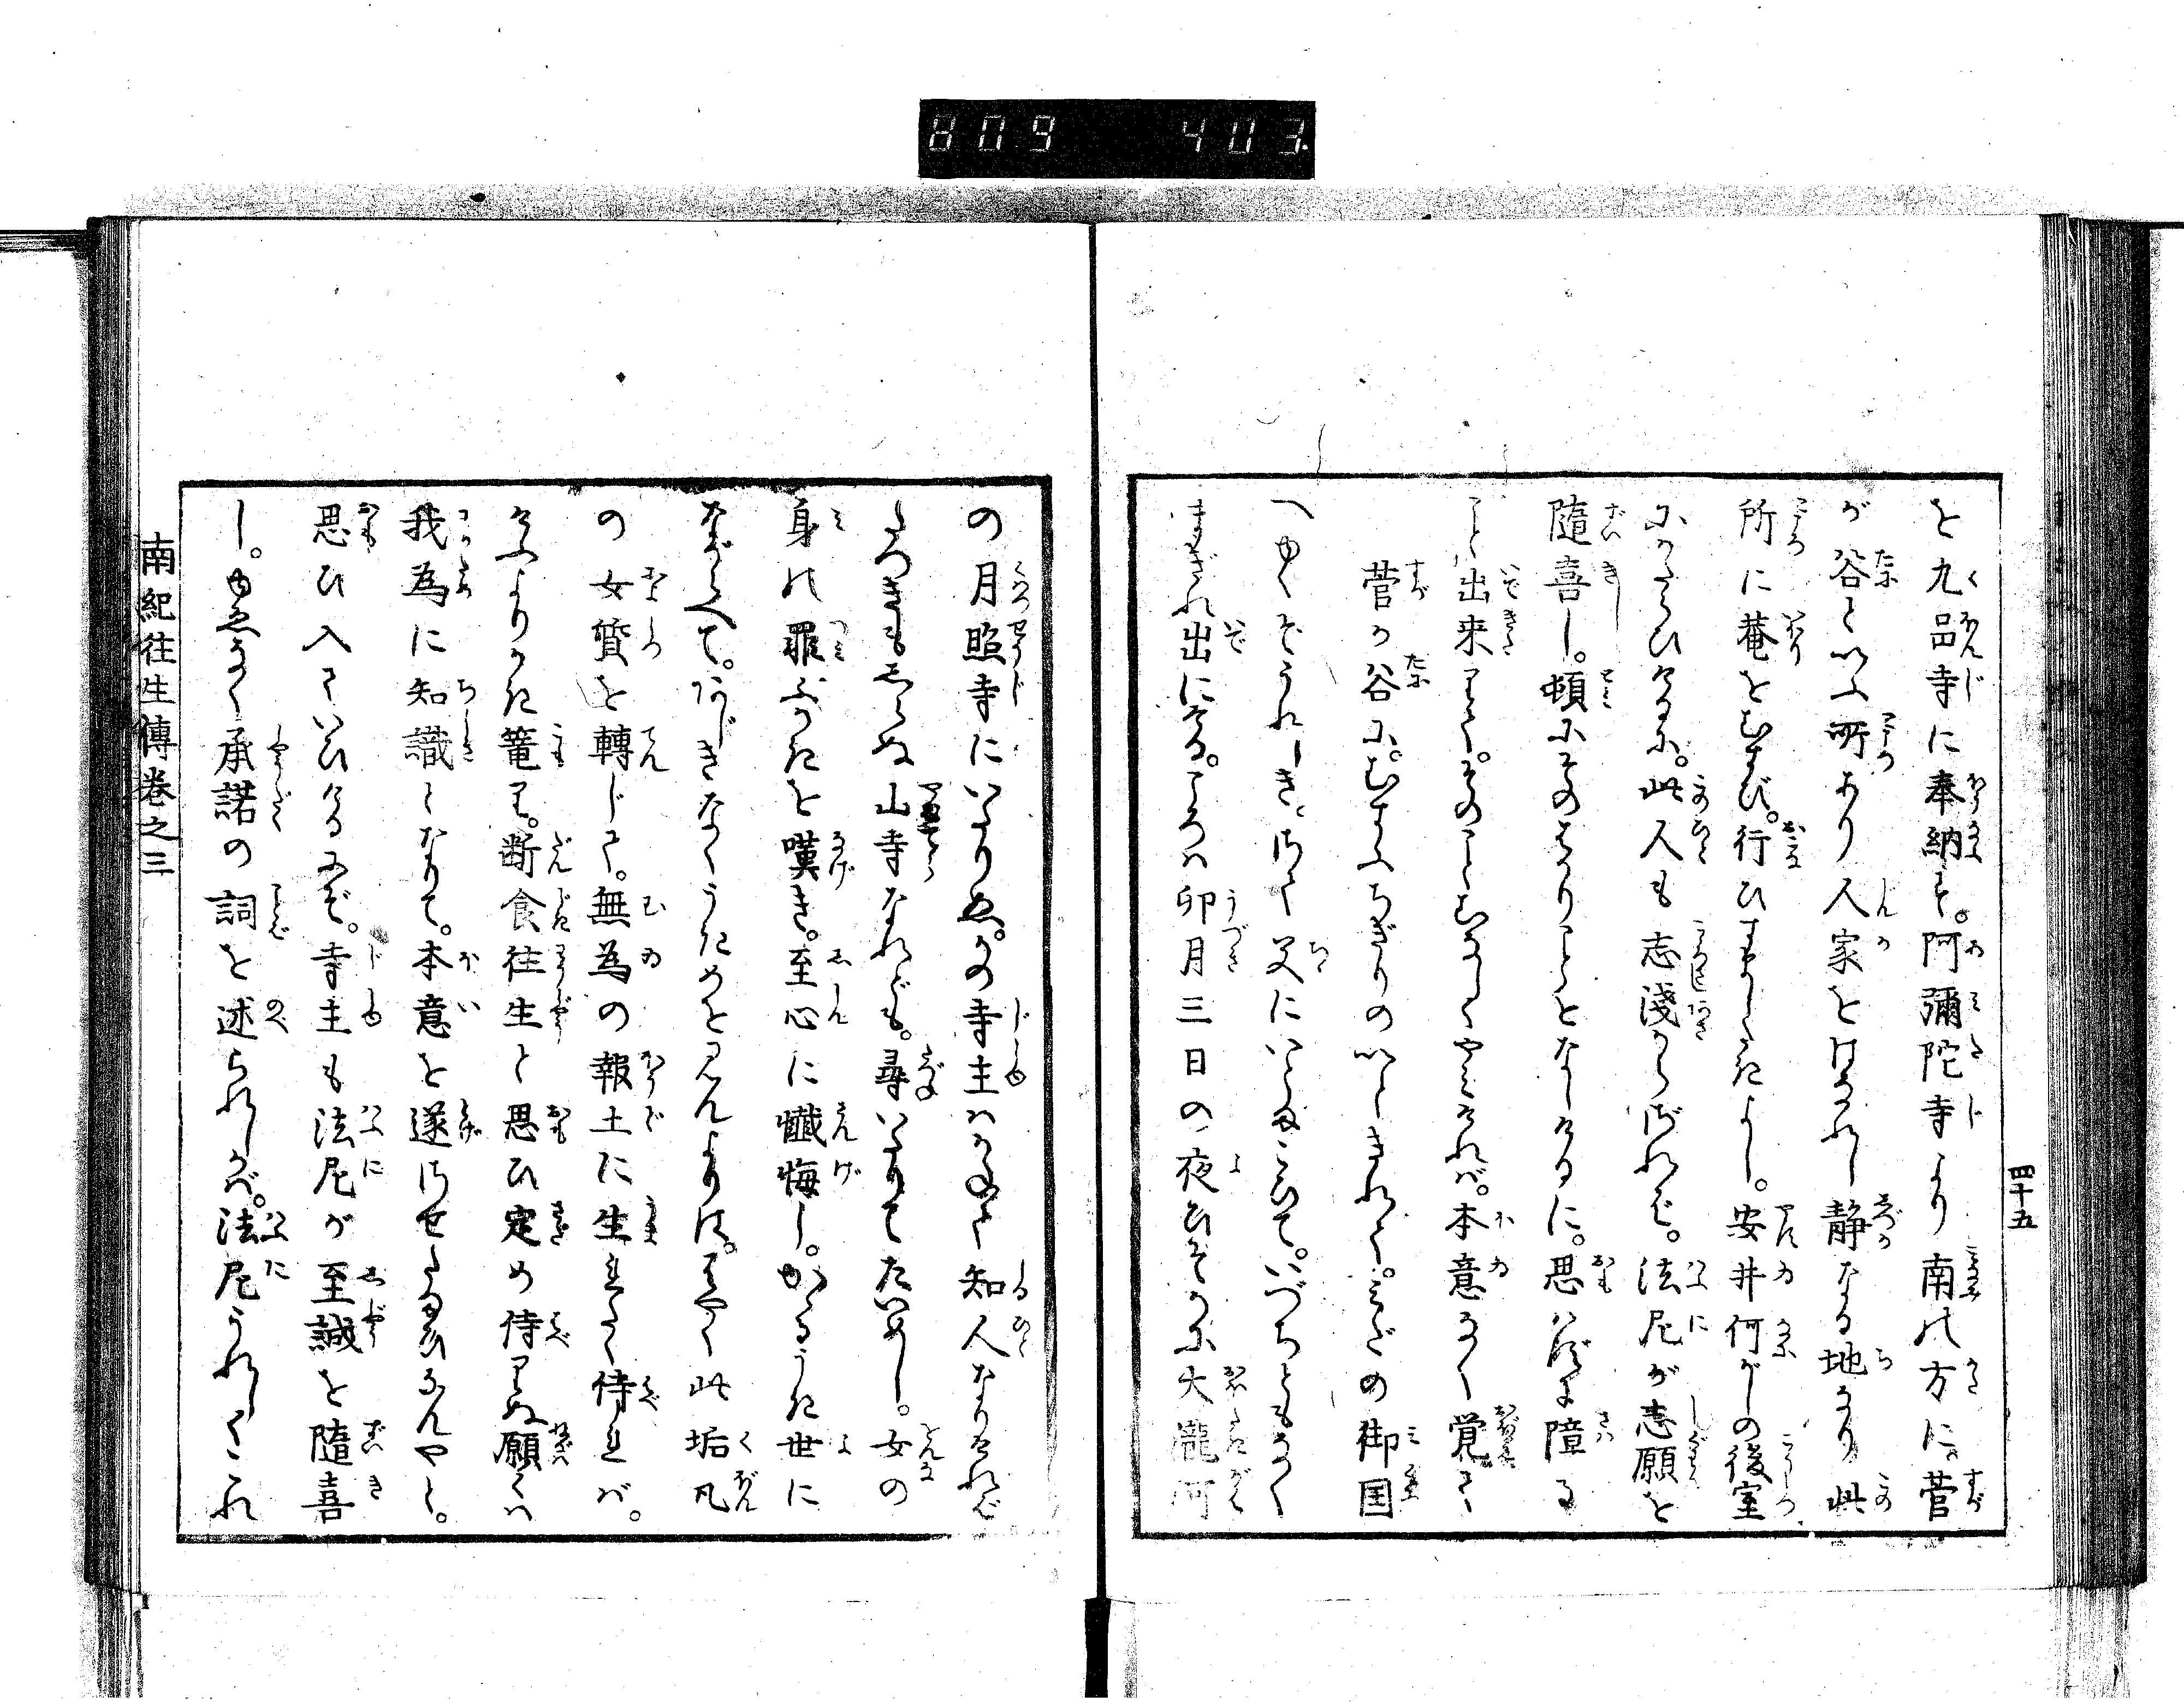 809 403
四十五
を九品寺に奉納す。阿彌陀寺より南の方に。菅
が谷といふ所あり人家をはなれし静なる地なり此
所に菴をむすび。行ひすましたるよし。安井何がしの後室
にかたらひけるに。此人も志淺からざれば。法尼が志願を
隨喜し。頓にそのはかりことをなしけるに。思はずも障る
こと出来りて。そのことむなしくやみければ。本意なく覚えて
菅か谷に。むすふちぎりのいとしきれて。みだの御国
へゆくぞうれしき、かくて又にいとまこひて。いづちともなく
まぎれ出にける。ころハ卯月三日の夜ひそかに大瀧河
の月照寺にいたりぬ。かの寺主ハかねて知人なりければ
たつきもしらぬ山寺なれども。尋いたりてたいめし。女の
身の罪ふかきを嘆き。至心に懺悔し。かゝるうき世に
ながらへて。あぢきなくうきめを見んよりは。はやく此垢凡
の女質を轉じて。無為の報土に生れたく侍れバ。
けふよりかき篭り。断食往生と思ひ定め侍りぬ願くハ
我為に知識となりて。本意を遂させたまひなんやと。
思ひ入ていひけるにぞ。寺主も法尼が至誠を隨喜
し。ゆゑなく承諾の詞を述られしかバ。法尼うれしくこれ
南紀往生傳巻之三